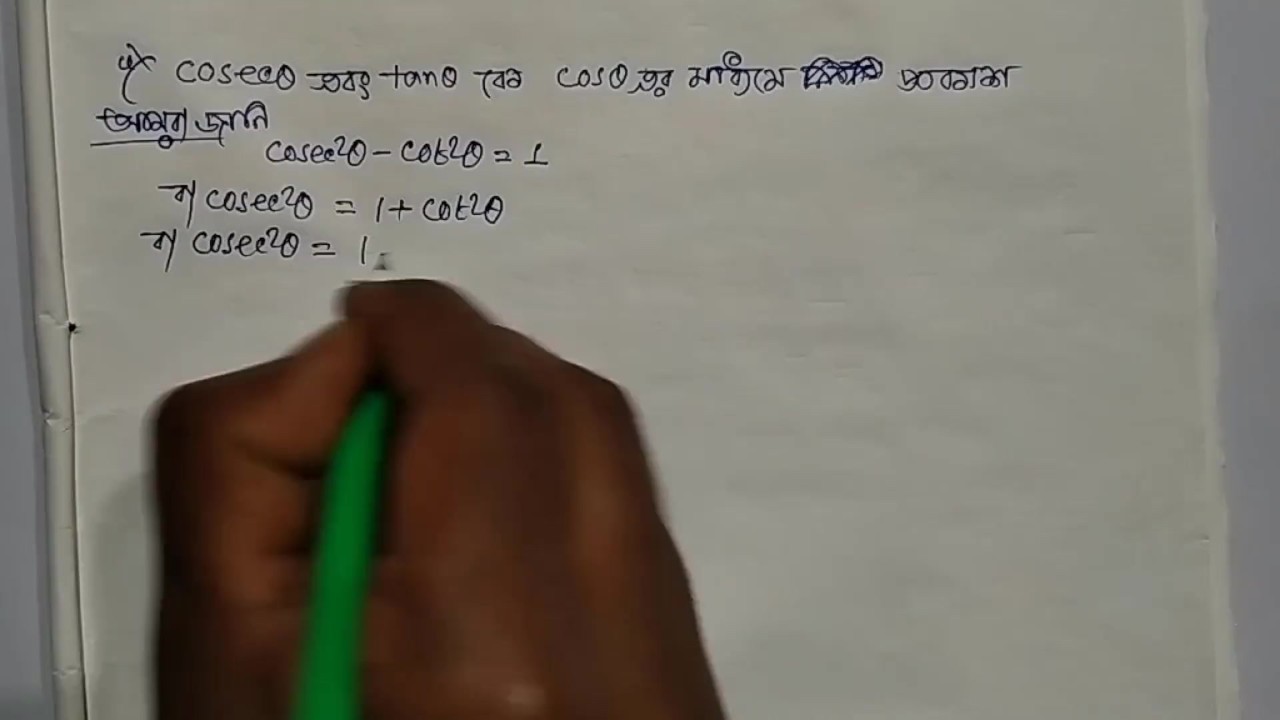 cosecθ এবং tanθ কে cosθ এর মাধ্যমে প্রকাশ
আমরা জানি
cosec²θ - cot²θ = 1
বা cosec²θ = 1 + cot²θ
বা cosec²θ = 1